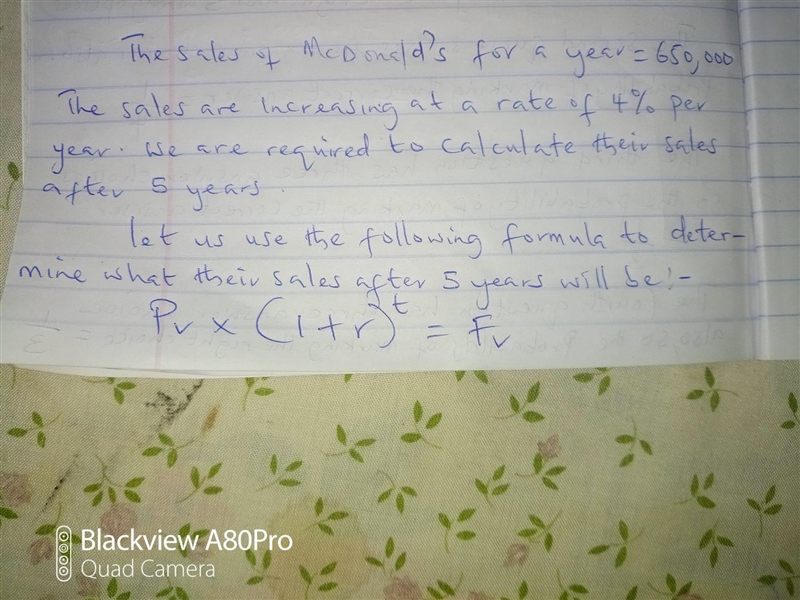 The sales of McDonald's for a year = 650,000
The sales are increasing at a rate of 4% per
year. We are required to calculate their sales
after 5 years.
let us use the following formula to deter-
mine what their sales after 5 years will be:-
Pv x (1+r)^t = Fv
Blackview A80Pro
Quad Camera